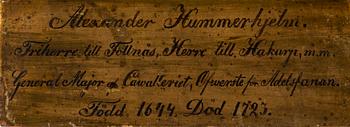 Alexander Hummerhjelm.
Friherre till Tottnäs, Herre till Hakunge, m.m.
General Major af Cavalleriet, Öfwerste för Adelsfanan.
Född. 1644. Död 1723.